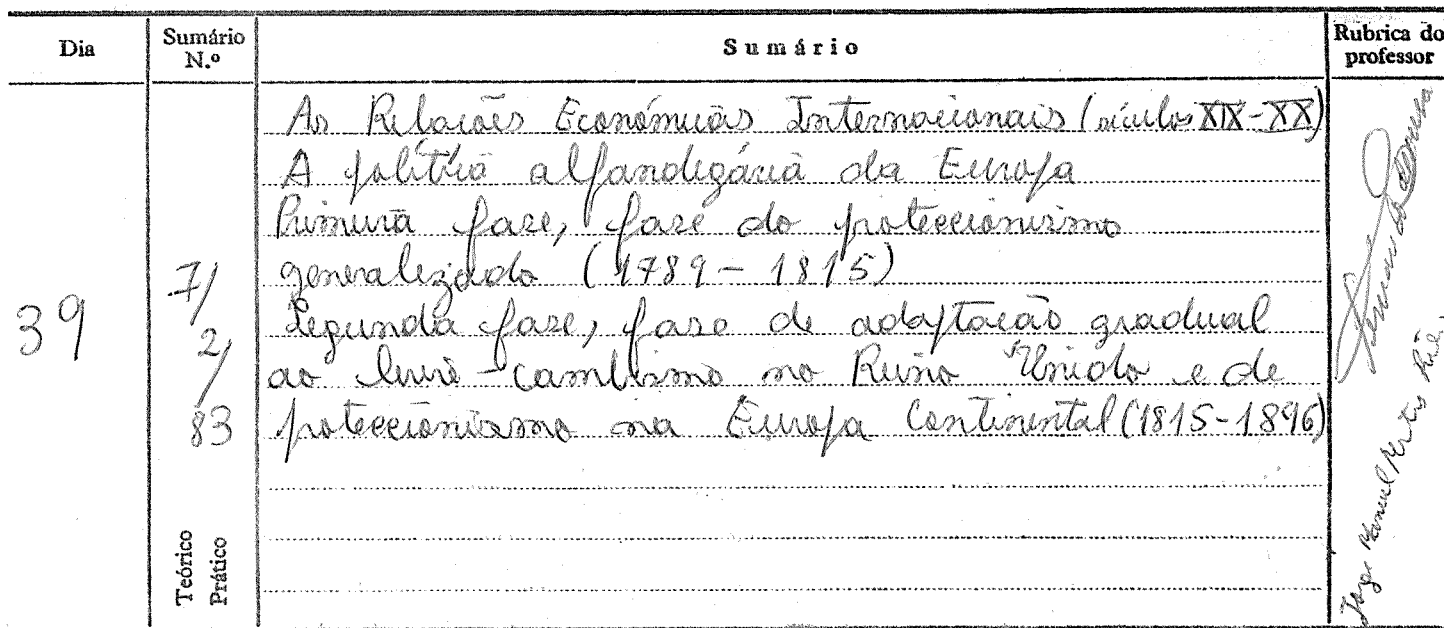 Dia
Sumário N.º
Sumário
Rubrica do professor
39
7/
2/
83
As Relações Económicas Internacionais (séculos XIX-XX)
A política alfandegária da Europa
Primeira fase, fase do proteccionismo
generalizado (1789 - 1815)
Segunda fase, fase de adaptação gradual
ao livre-cambismo no Reino Unido e de
proteccionismo na Europa Continental (1815-1896)
Teórico
Prático
Jorge Manuel